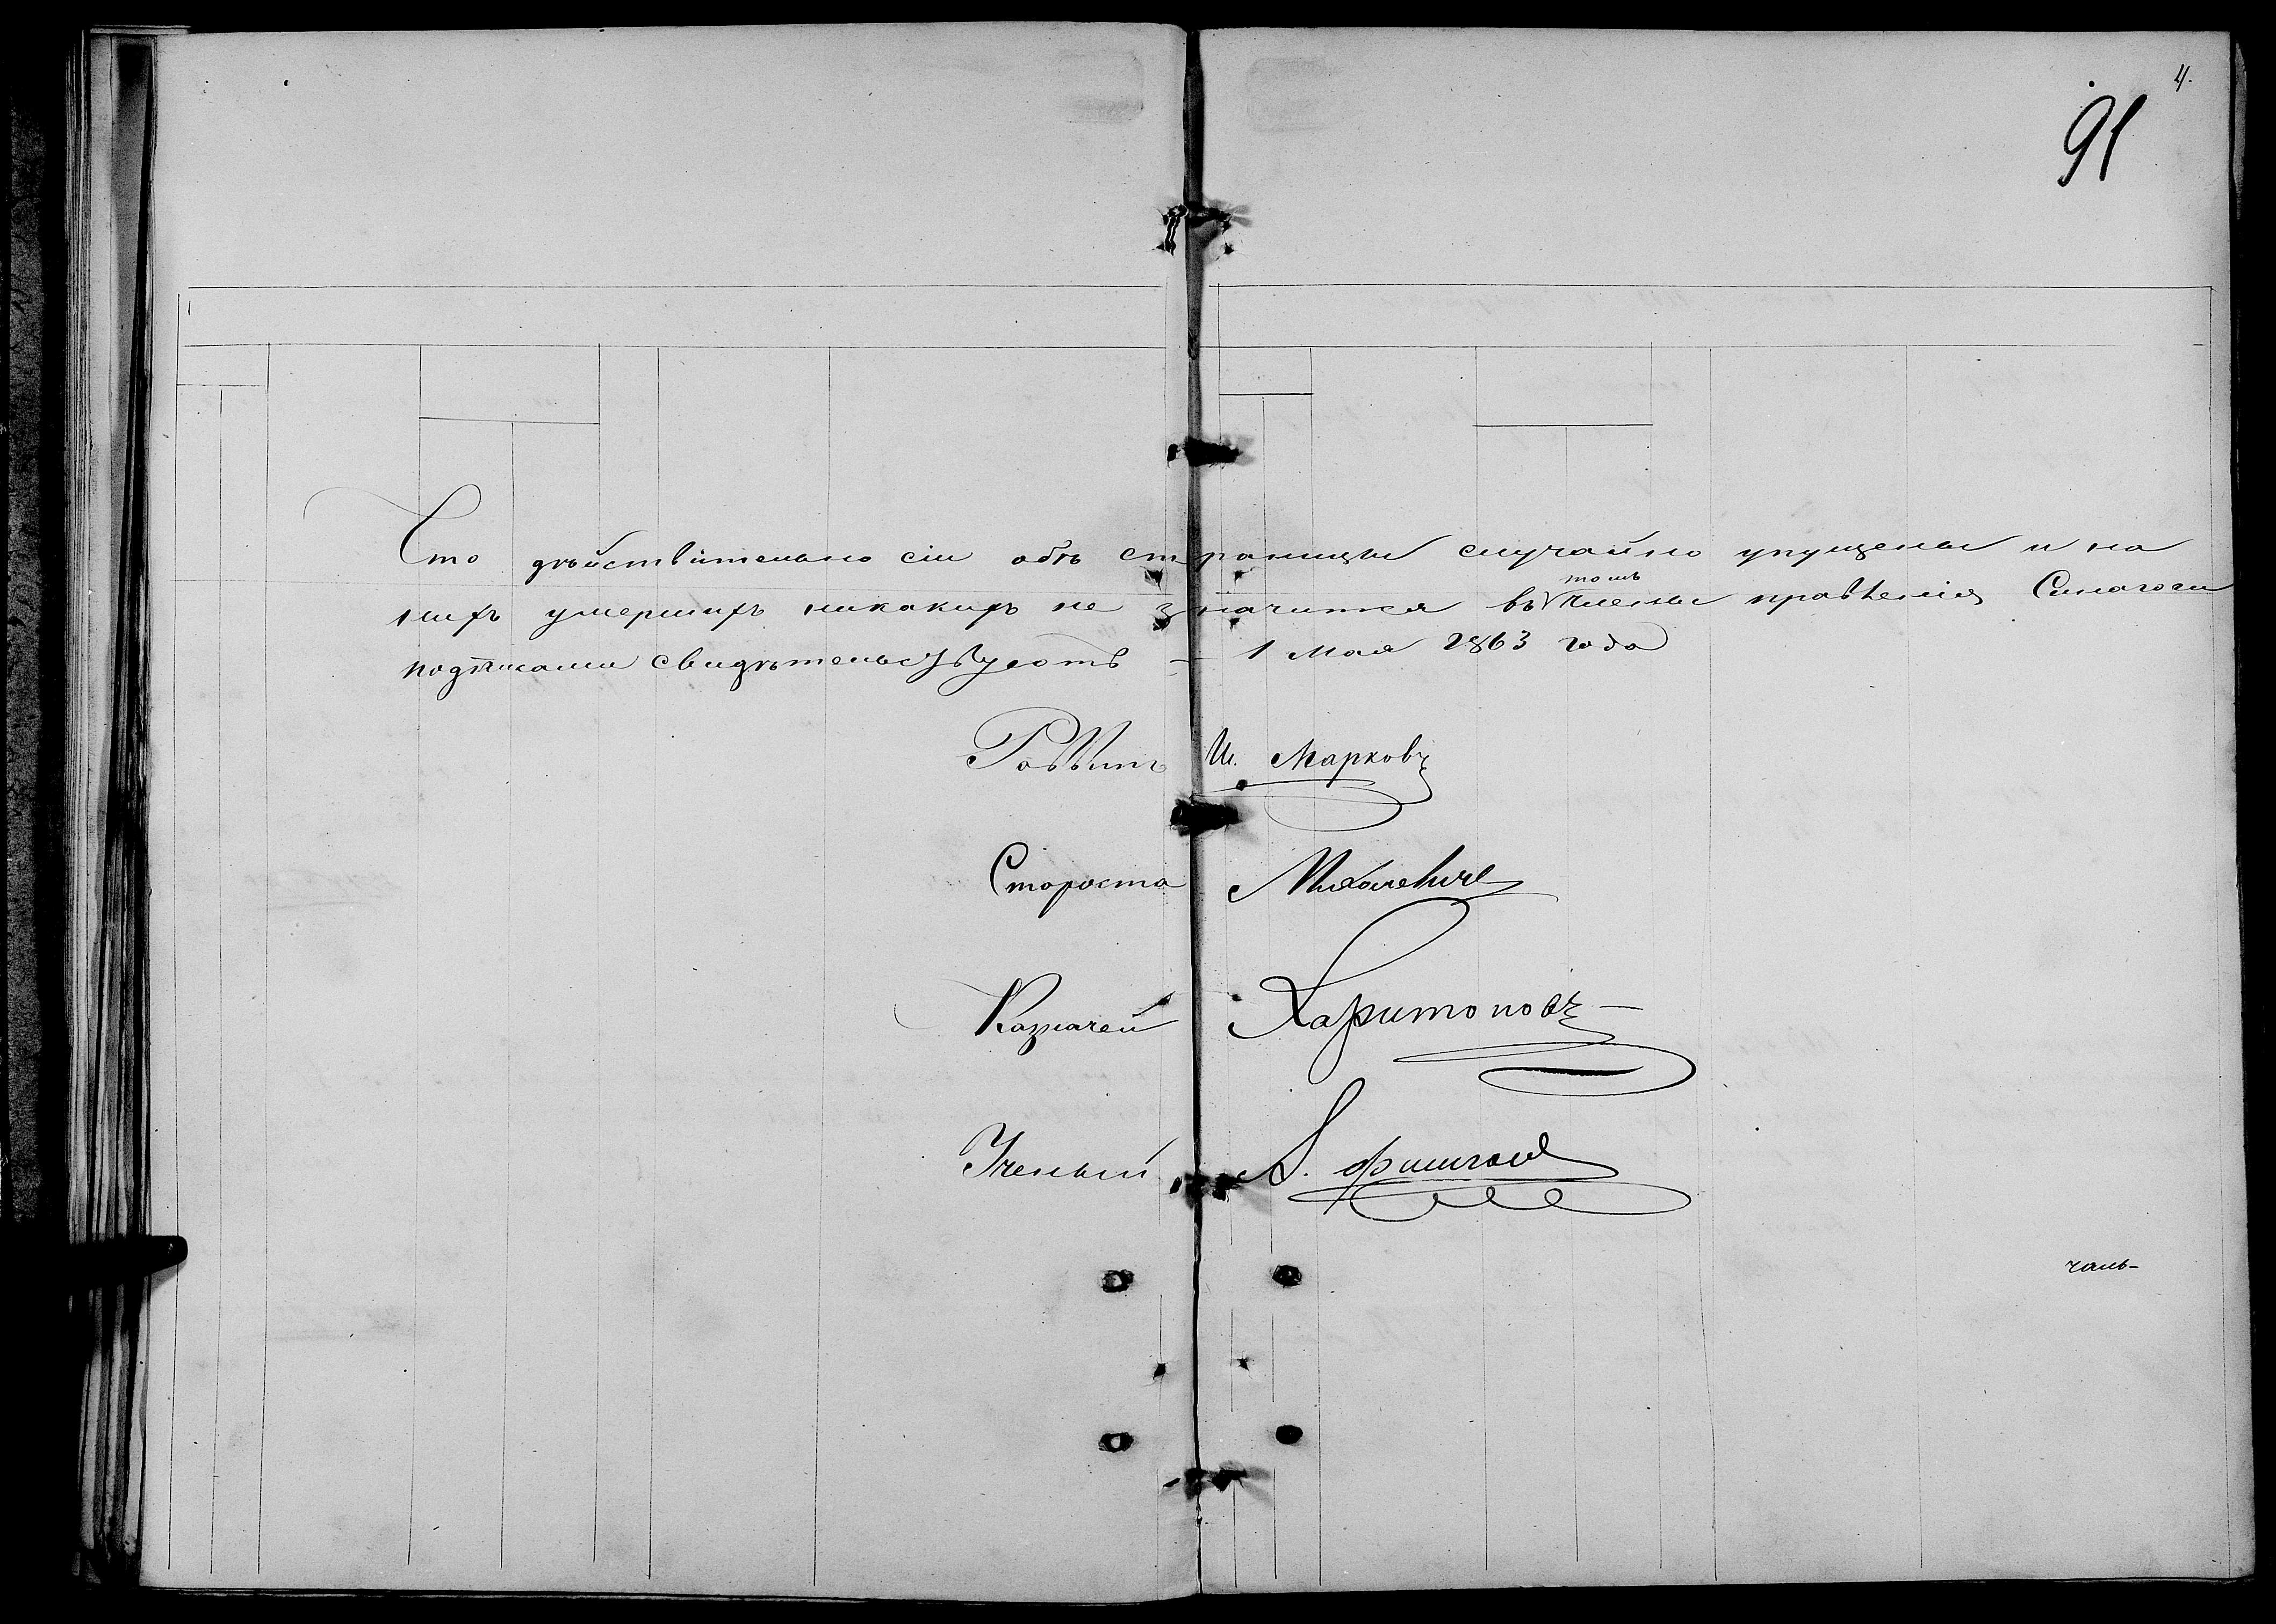 4.
91
Что дѣйствительно сіи обѣ страницы случайно упущены и на
нихъ умершихъ никакихъ не значится въ томъ члены правленія Синагоги
подписами свидѣтельствуютъ — 1 Мая 1863 года
Раввинъ И. Марковъ
Староста Михалевичъ
Казначей Харитоновъ
Ученый А. Фишгаль
чаль-